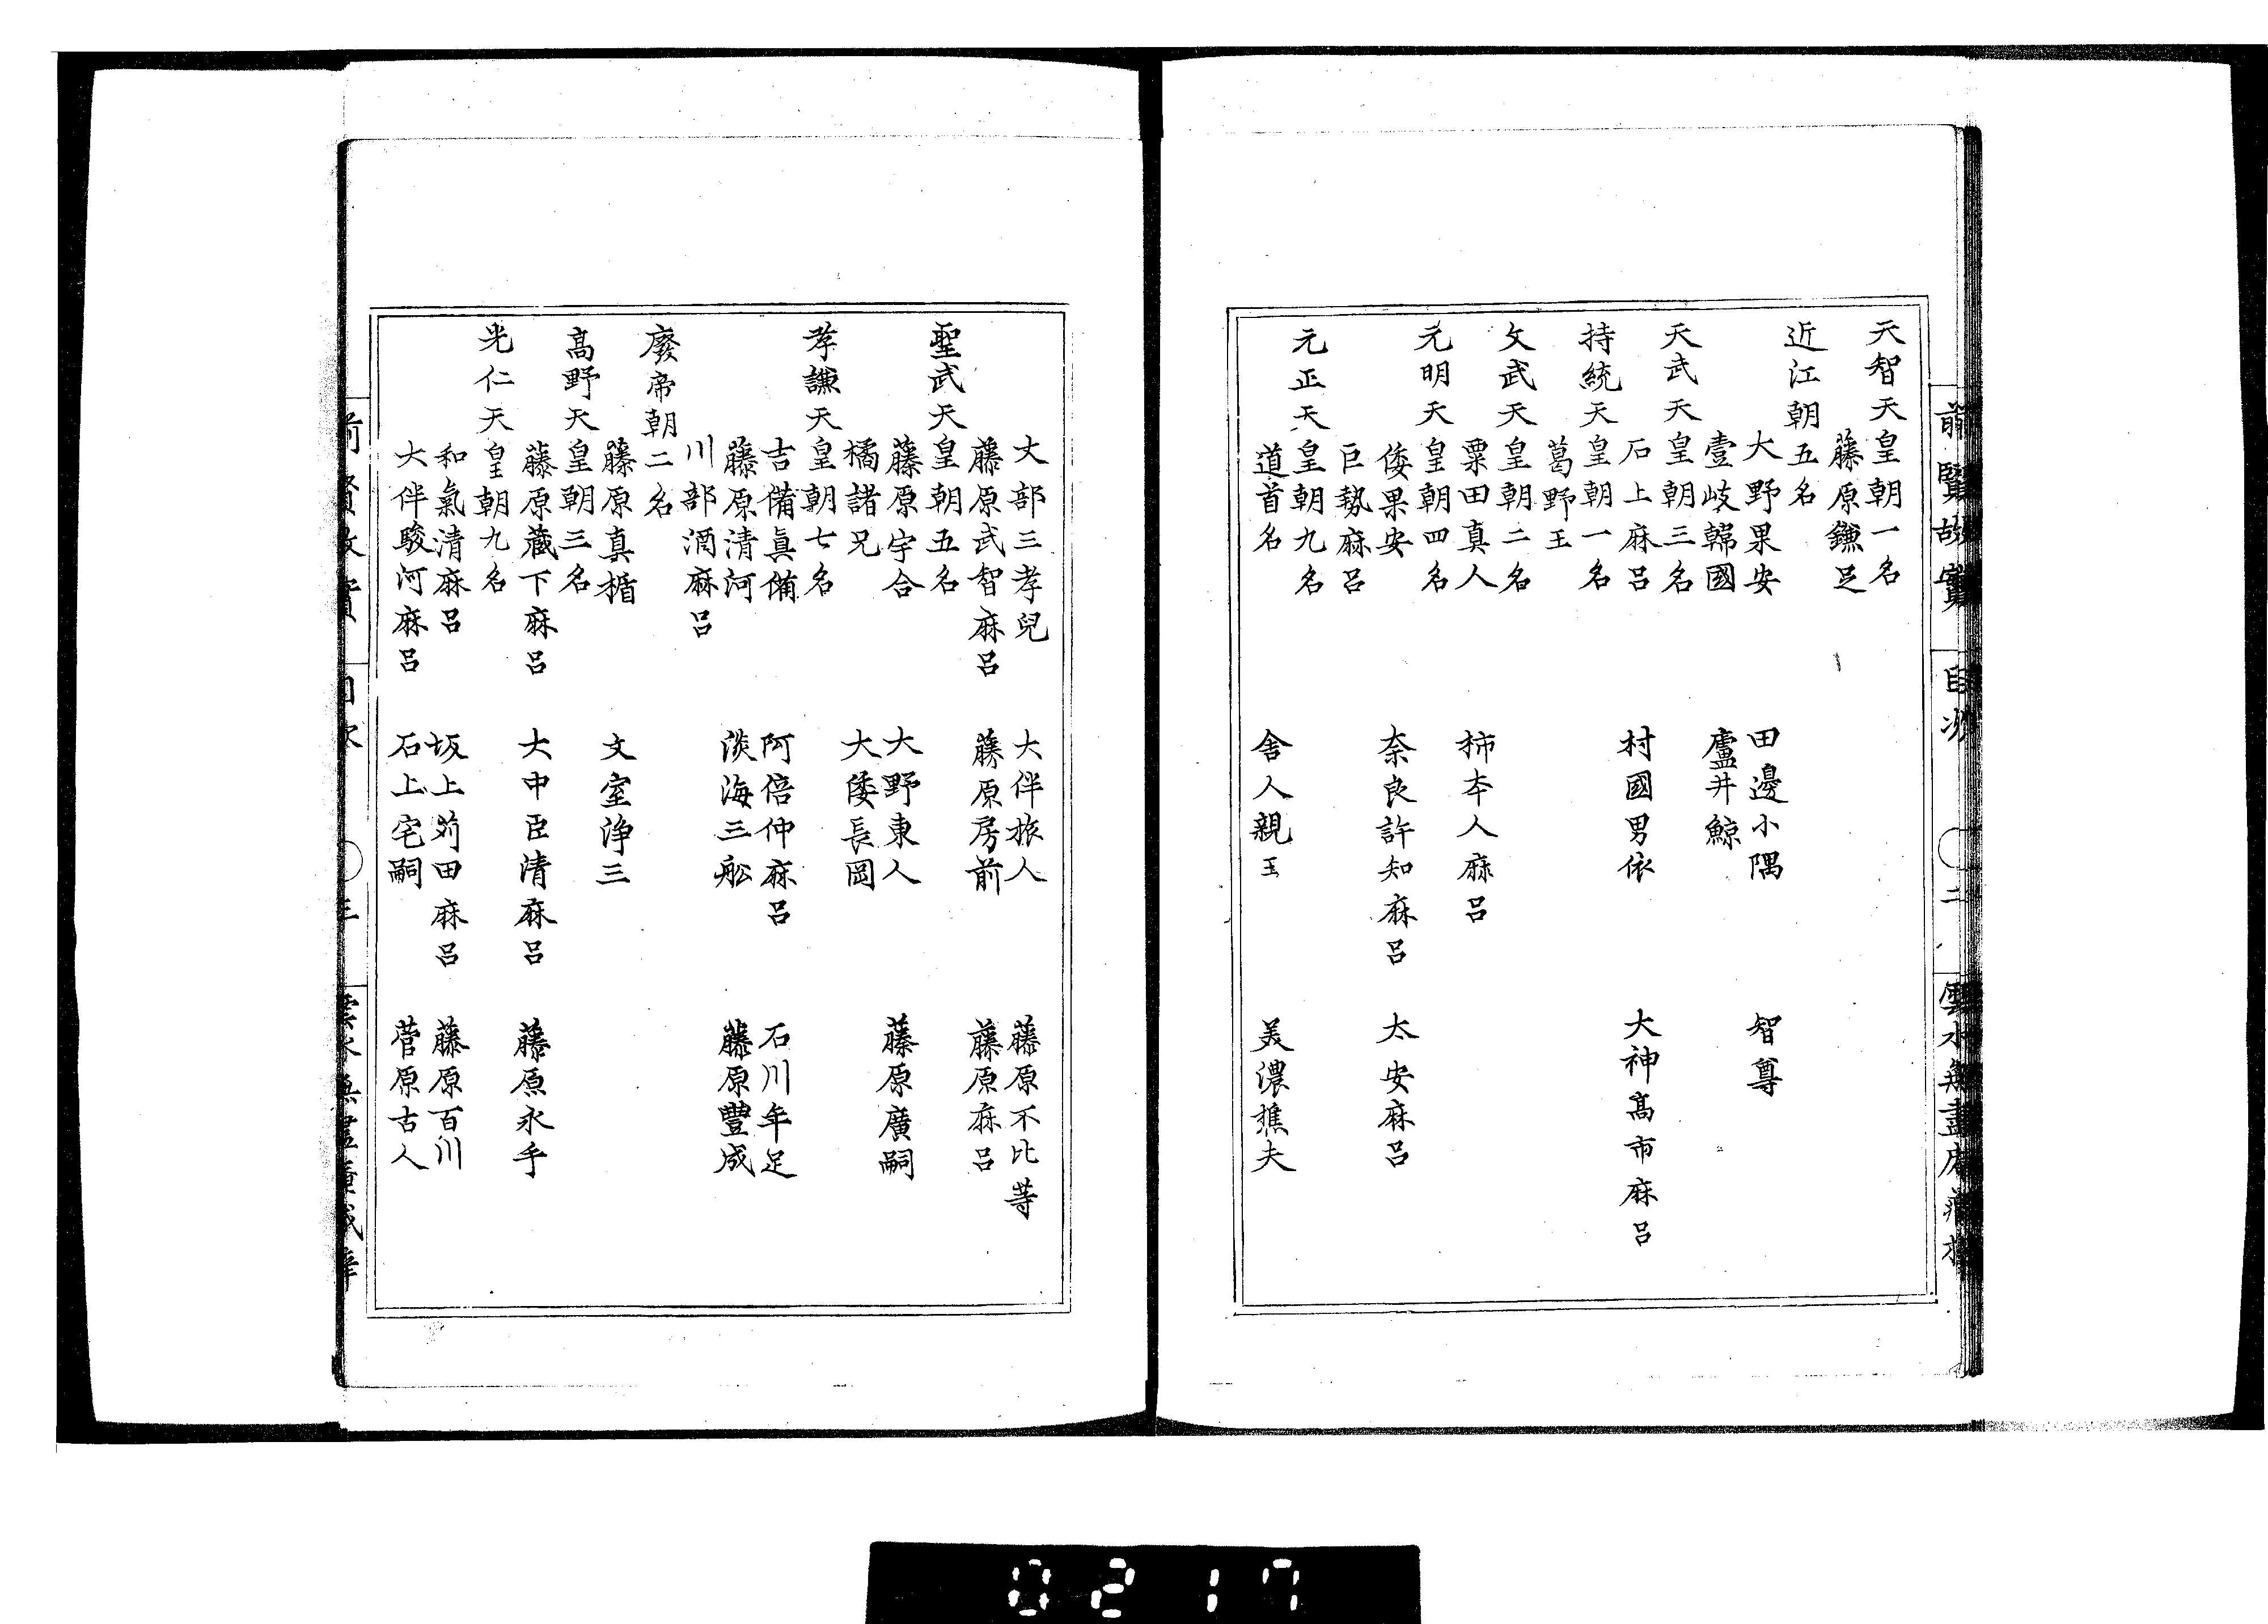 前賢故實
目次
二
天智天皇朝一名
藤原鎌足
近江朝五名
大野果安　田邊小隅　智尊
壹岐韓國　廬井鯨
天武天皇朝三名
石上麻呂　村國男依　大神髙市麻呂
持統天皇朝一名
葛野王
文武天皇朝二名
粟田真人　柿本人麻呂
元明天皇朝四名
倭果安　奈良許知麻呂　太安麻呂
巨勢麻呂
元正天皇朝九名
道首名　舍人親王　美濃樵夫
丈部三孝兒　大伴旅人　藤原不比等
藤原武智麻呂　藤原房前　藤原麻呂
聖武天皇朝五名
藤原宇合　大野東人　藤原廣嗣
橘諸兄　大倭長岡
孝謙天皇朝七名
吉備眞備　阿倍仲麻呂　石川年足
藤原清河　淡海三舩　藤原豐成
川部酒麻呂
廢帝朝二名
藤原真楯　文室浄三
髙野天皇朝三名
藤原藏下麻呂　大中臣清麻呂　藤原永手
光仁天皇朝九名
和氣清麻呂　坂上苅田麻呂　藤原百川
大伴駿河麻呂　石上宅嗣　菅原古人
0217